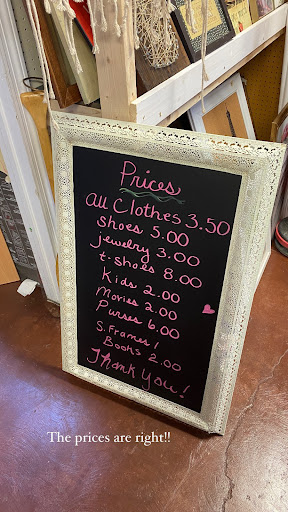 Prices
All Clothes 3.50
Shoes 5.00
jewelry 3.00
t-shoes 8.00
Kids 2.00
Movies 2.00
Purses 6.00
S. Frames 1
Books 2.00
Thank You!
The prices are right!!